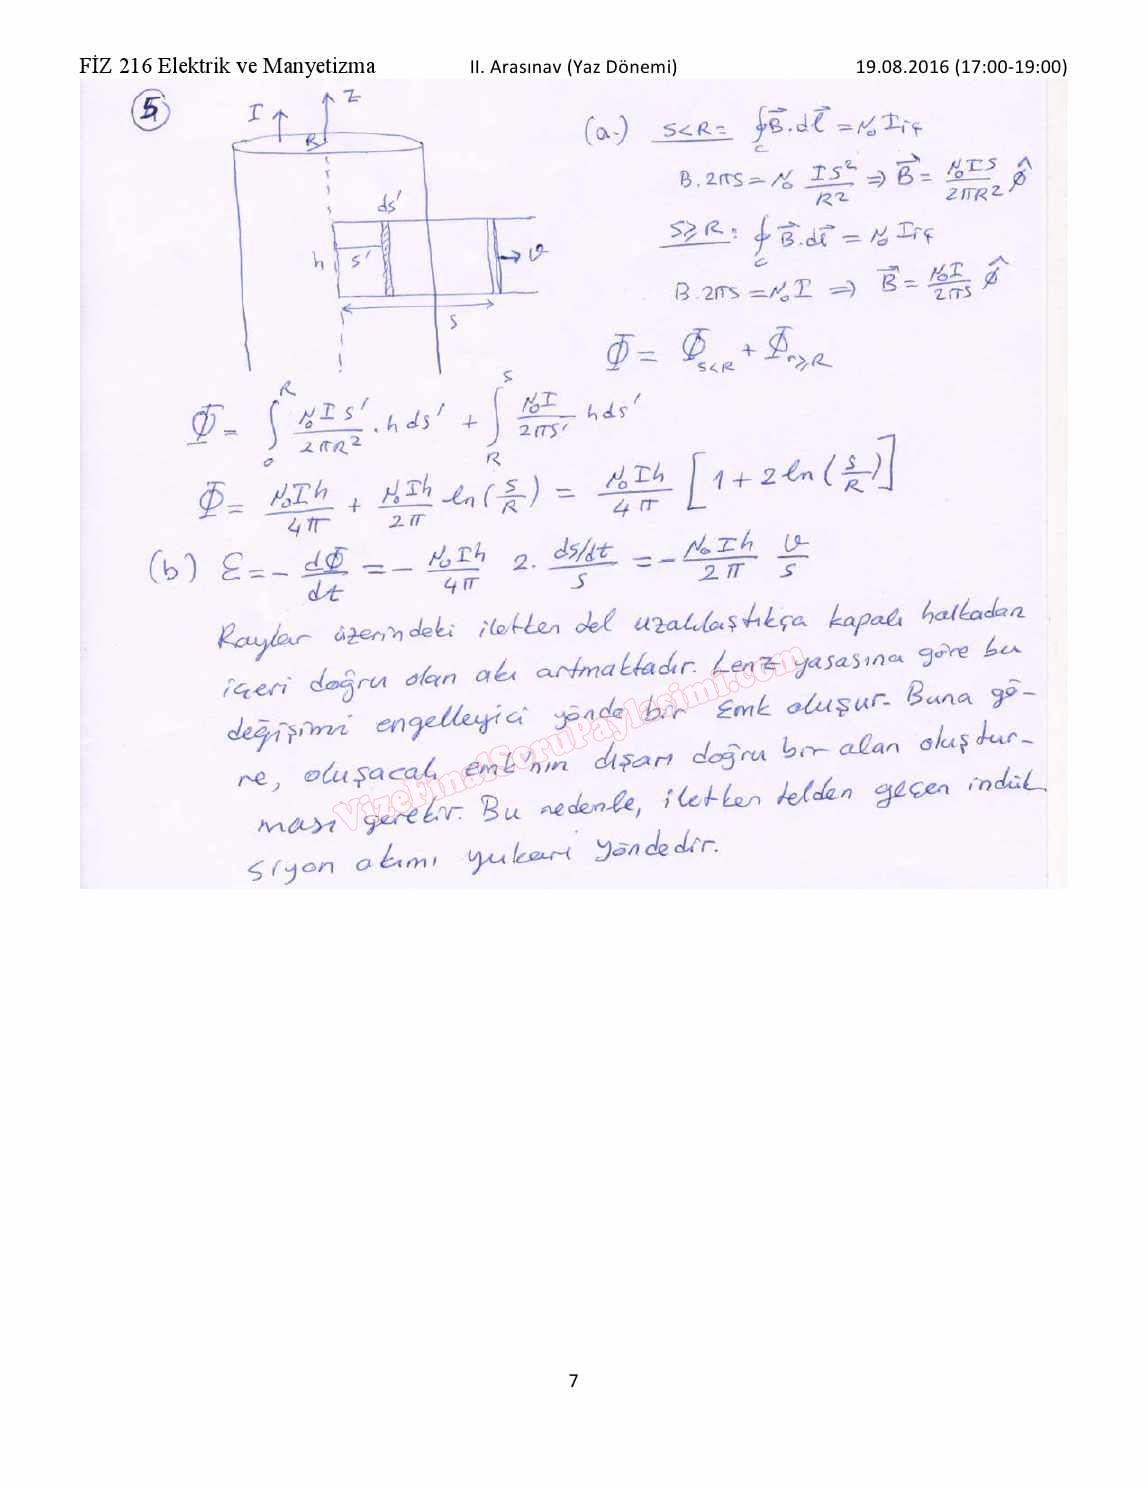 FİZ 216 Elektrik ve Manyetizma II. Arasınav (Yaz Dönemi) 19.08.2016 (17:00-19:00)
5
I z
R
ds'
h s' v
s
(a.) s<R= ∮_C B⃗.dl⃗ = μ₀ I_iç
B.2πs = μ₀ Is²/R² ⇒ B⃗ = μ₀Is/2πR² φ̂
s≥R: ∮_C B⃗.dl⃗ = μ₀ I_iç
B.2πs = μ₀I ⇒ B⃗ = μ₀I/2πs φ̂
Φ = Φ_s<R + Φ_r≥R
Φ = ∫₀^R μ₀Is'/2πR² . h ds' + ∫_R^s μ₀I/2πs' h ds'
Φ = μ₀Ih/4π + μ₀Ih/2π ln(s/R) = μ₀Ih/4π [1 + 2 ln(s/R)]
(b) ℰ = - dΦ/dt = - μ₀Ih/4π 2. ds/dt/s = - μ₀Ih/2π v/s
Raylar üzerindeki iletken tel uzaklaştıkça kapalı halkadan
içeri doğru olan akı artmaktadır. Lenz yasasına göre bu
değişimi engelleyici yönde bir emk oluşur. Buna gö-
re, oluşacak emk'nın dışarı doğru bir alan oluştur-
ması gerekir. Bu nedenle, iletken telden geçen indük
siyon akımı yukarı yöndedir.
VizeFinalSoruPaylasimi.com
7